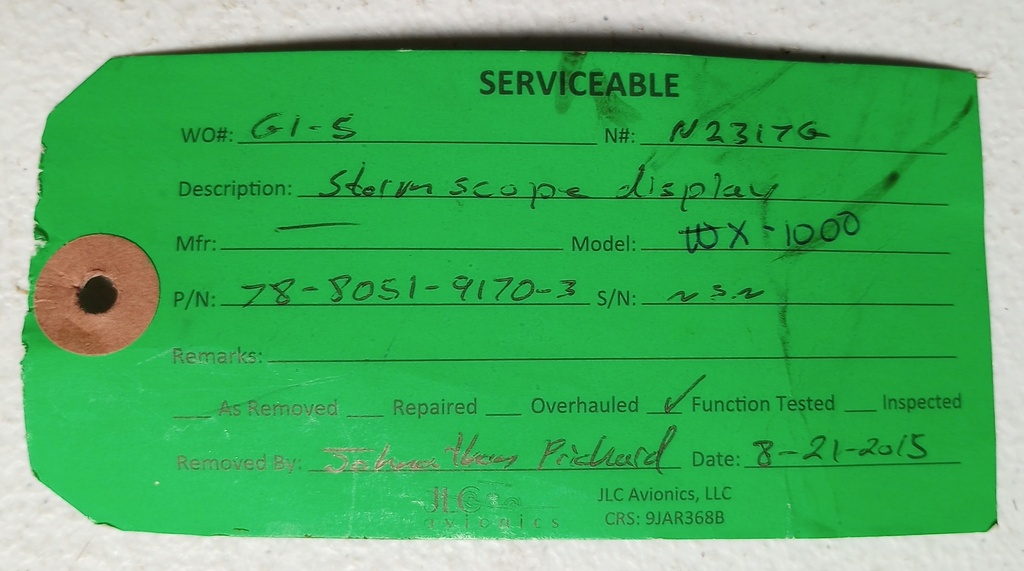 SERVICEABLE
WO#: G1-5 N#: N2317G
Description: Stormscope display
Mfr: — Model: WX-1000
P/N: 78-8051-9170-3 S/N: NSN
Remarks:
As Removed Repaired Overhauled ✓ Function Tested Inspected
Removed By: Johnathan Prichard Date: 8-21-2015
JLC avionics
JLC Avionics, LLC
CRS: 9JAR368B